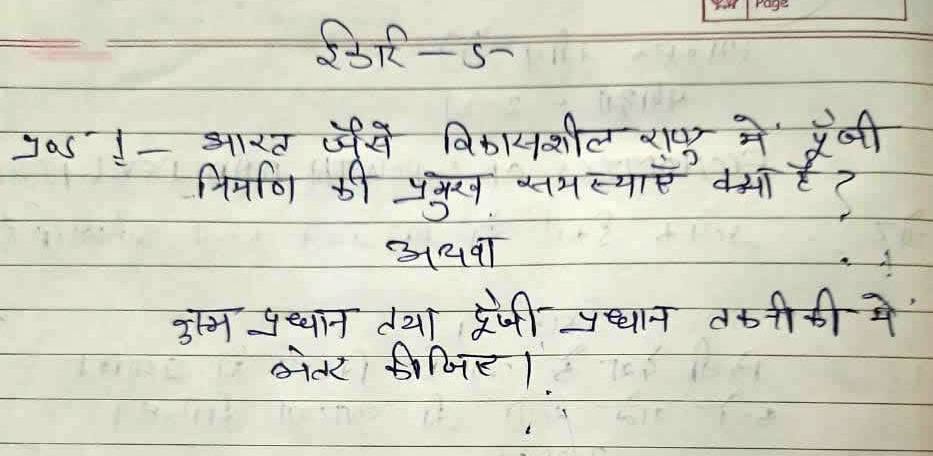 Page
इकाई - 5
प्रश्न 1 - भारत जैसे विकासशील राष्ट्र में पूँजी
निर्माण की प्रमुख समस्याएँ क्या है ?
अथवा
श्रम प्रधान तथा पूँजी प्रधान तकनीकी में
अंतर कीजिए।